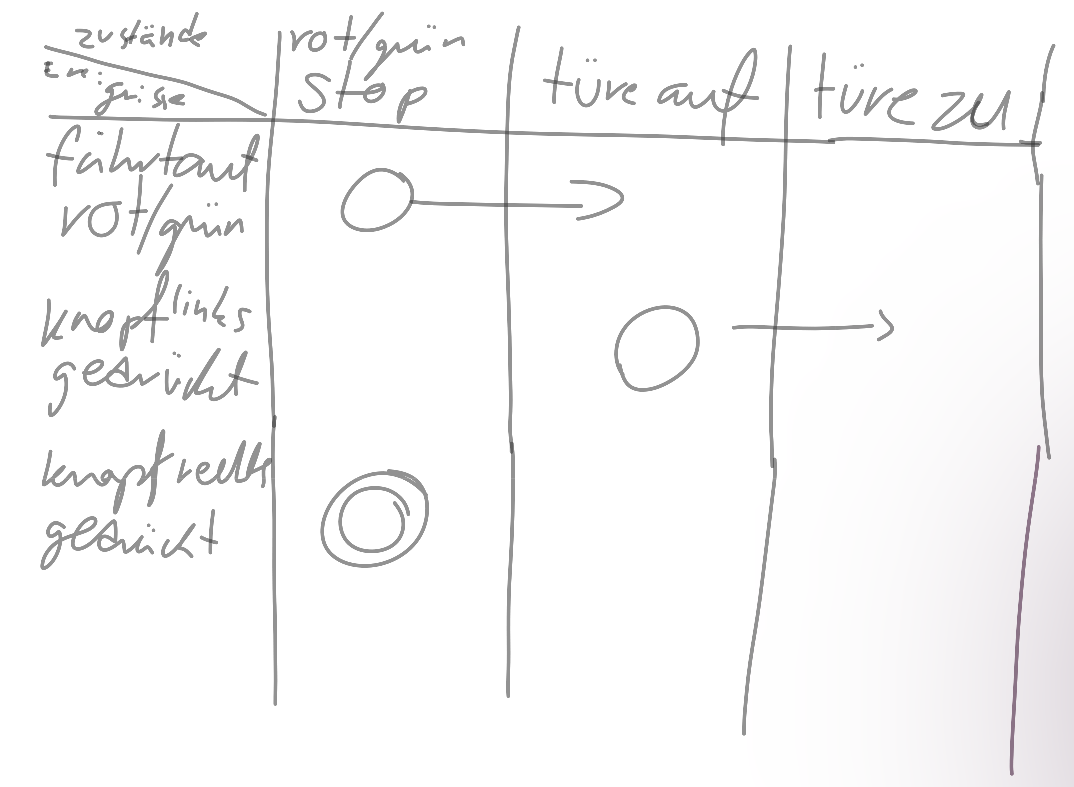 zustände
Ereignisse
rot/grün
Stop
türe auf
türe zu
fährt auf
rot/grün
knopf links
gedrückt
knopf rechts
gedrückt